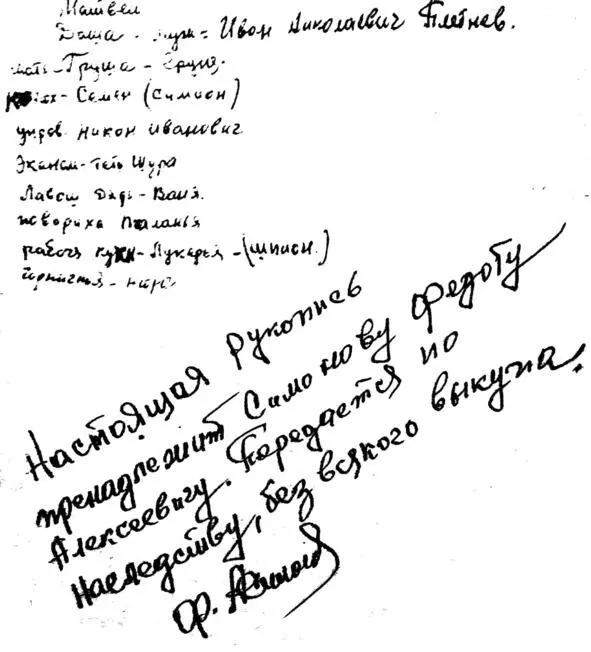 Матвей
Даша - муж = Иван Николаевич Плетнев.
мать - Груша -
Семен (Симион)
управ. Никон Иванович
Эканом - тетя Шура
Дядя - Ваня.
повориха Маланья
рабоч. кухн - Лукерья - (шпион.)
Настоящая рукопись
пренадлежит Симонову Федоту
Алексеевичу. Передается по
наследству, без всякого выкупа.
Ф.